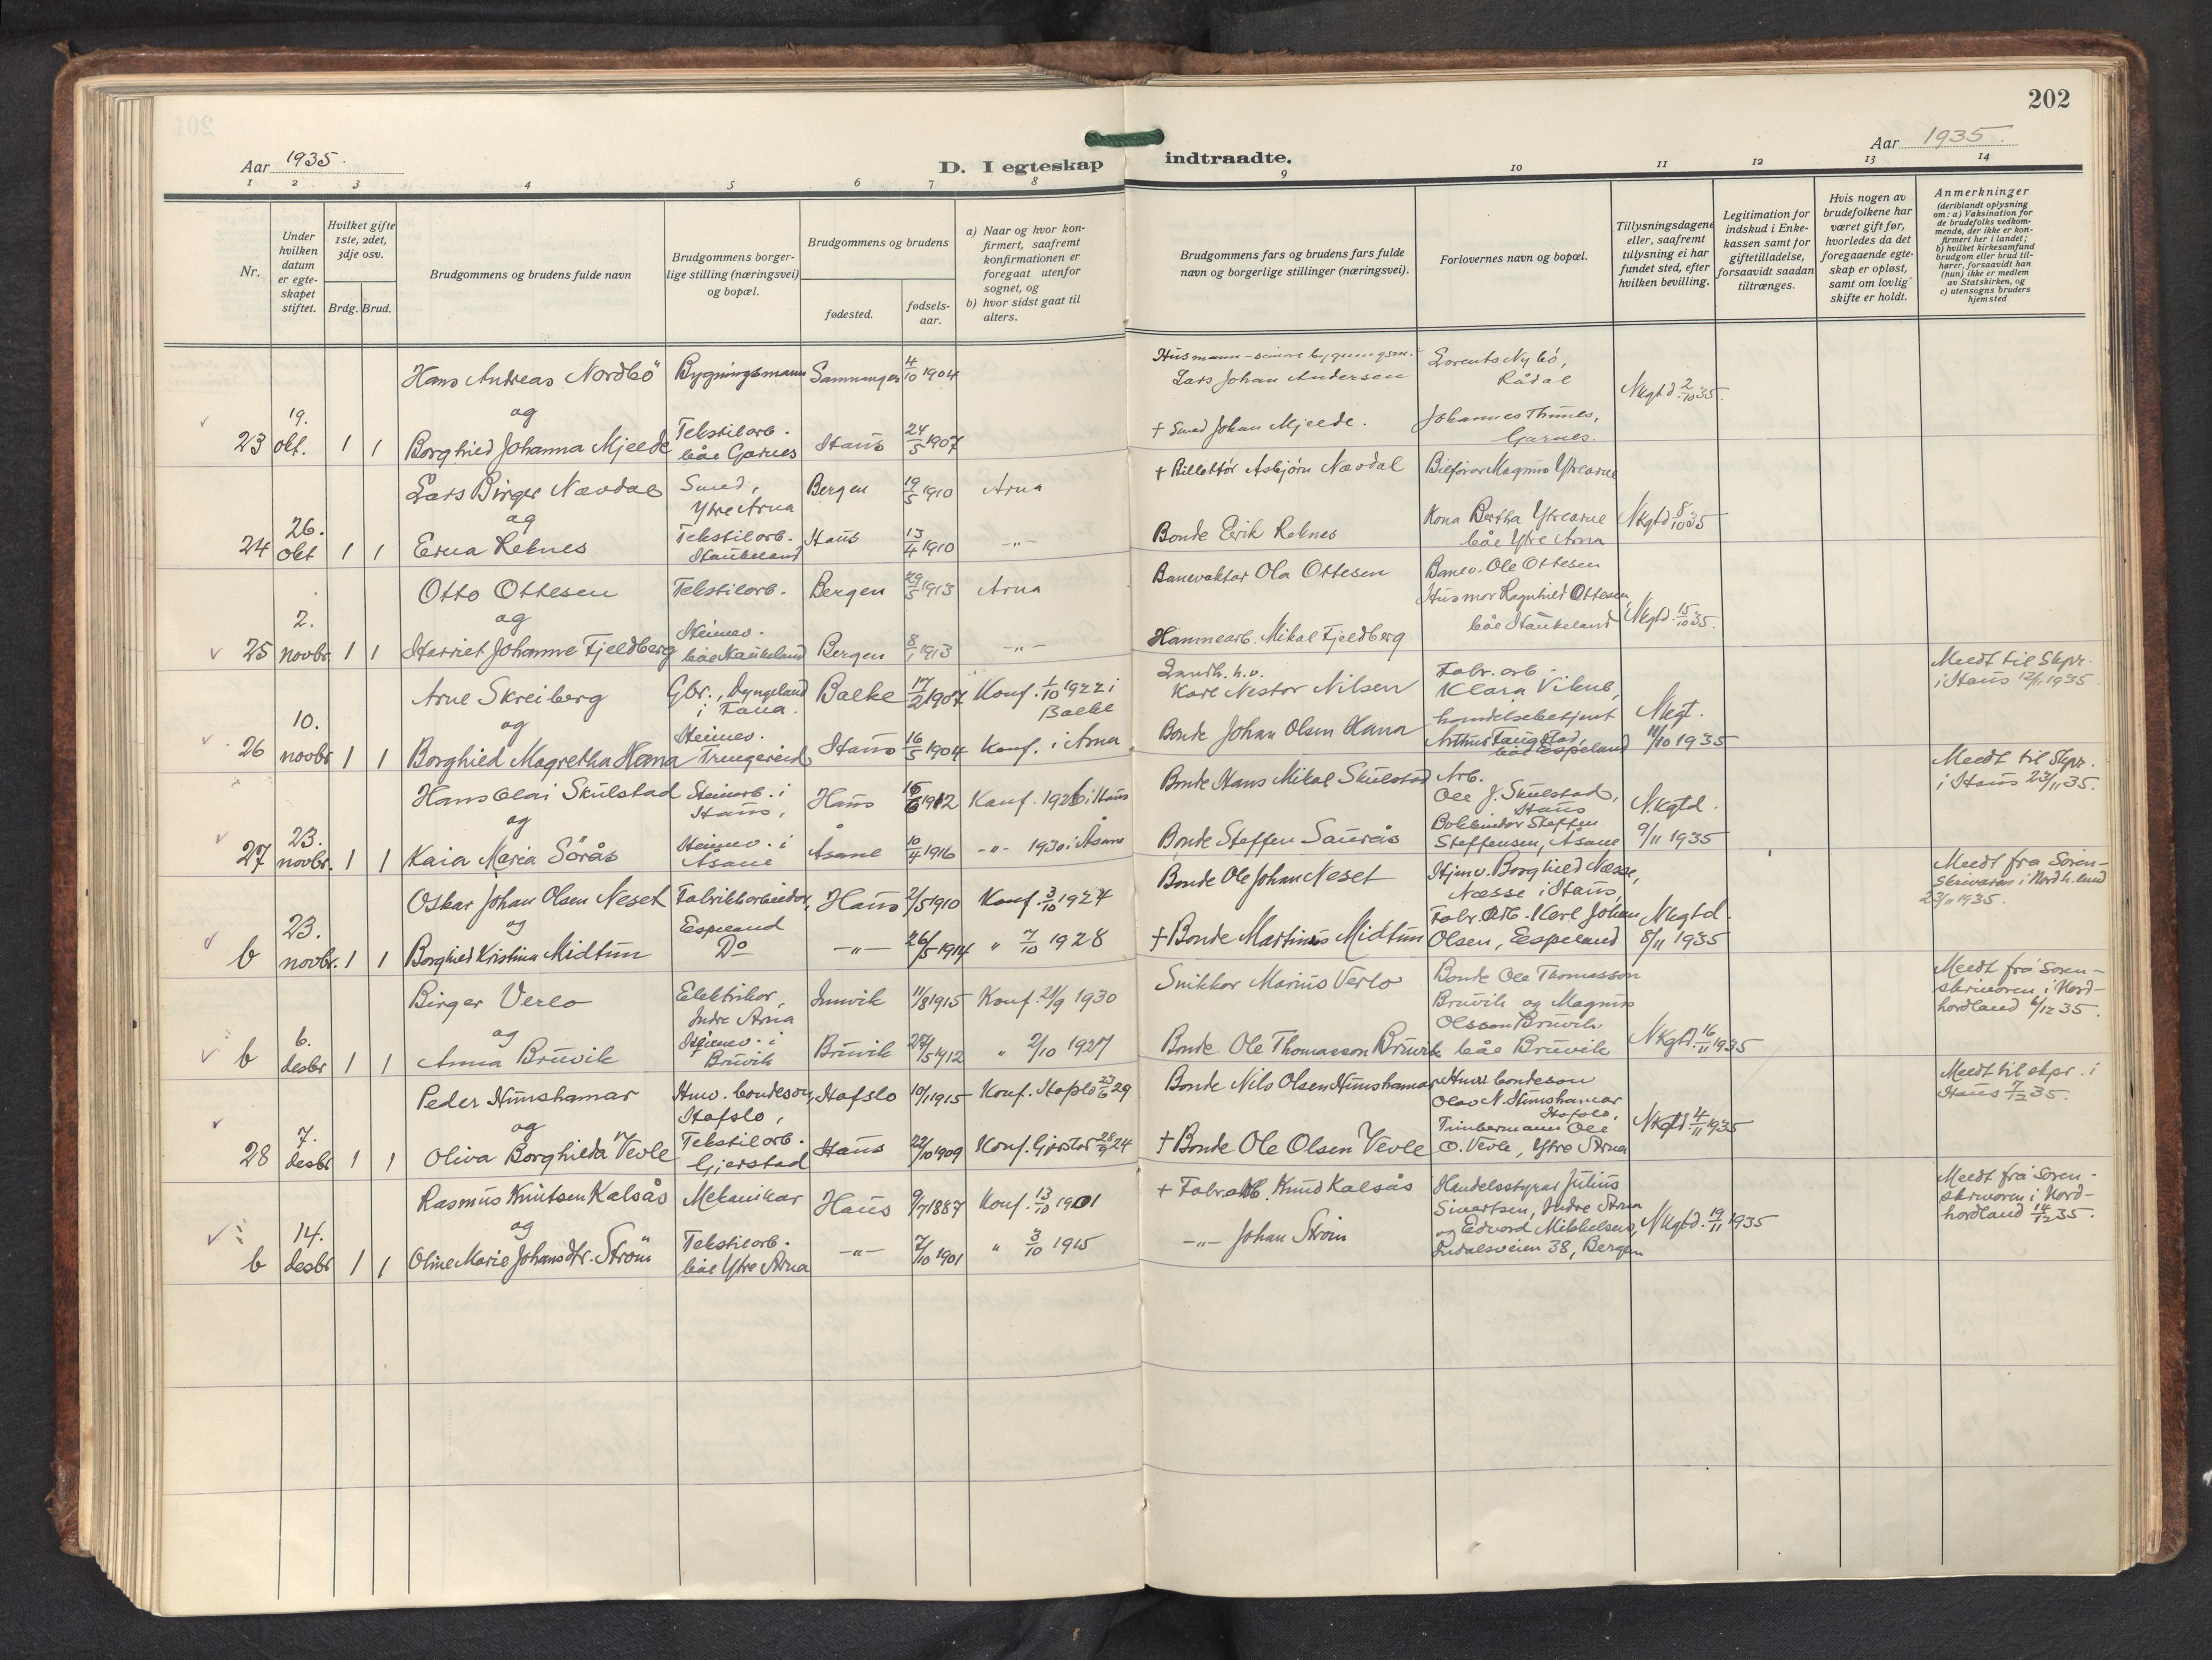 202
Aar 1935.
D. I egteskap indtraadte.
Aar 1935.
1 2 3 4 5 6 7 8 9 10 11 12 13 14
Nr.
Under hvilken datum er egte-skapet stiftet.
Hvilket gifte 1ste, 2det, 3dje osv.
Brdg. Brud.
Brudgommens og brudens fulde navn
Brudgommens borger-lige stilling (næringsvei) og bopæl.
Brudgommens og brudens
fødested.
fødsels-aar.
a) Naar og hvor kon-firmert, saafremt konfirmationen er foregaat utenfor sognet, og
b) hvor sidst gaat til alters.
Brudgommens fars og brudens fars fulde navn og borgerlige stillinger (næringsvei).
Forlovernes navn og bopæl.
Tillysningsdagene eller, saafremt tillysning ei har fundet sted, efter hvilken bevilling.
Legitimation for indskud i Enke-kassen samt for giftetilladelse, forsaavidt saadan tiltrænges.
Hvis nogen av brudefolkene har været gift før, hvorledes da det foregaaende egte-skap er opløst, samt om lovlig skifte er holdt.
Anmerkninger
(deriblandt oplysning om: a) Vaksination for de brudefolks vedkom-mende, der ikke er kon-firmert her i landet;
b) hvilket kirkesamfund brudgom eller brud til-hører, forsaavidt han (hun) ikke er medlem av Statskirken, og
c) utensogns bruders hjemsted
Hans Andreas Nordbö Bygningsmann Samnanger 4/10 1904 Lars Johan Andersen Lorents Nybö, Rådal Nkgtd. 2/10 35.
og
23 19. okt. 1 1 Borghild Johanna Mjelde Tekstilarb. båe Garnes Haus 24/5 1907 † Smed Johan Mjelde. Johannes Thunes, Garnes.
Lars Birger Nævdal Smed, Ytre Arna Bergen 19/5 1910 Arna † Billettör Asbjørn Nævdal Bilförar Magnus Ytrearne
og
24 26. okt 1 1 Erna Reknes Tekstilarb. Haukeland Haus 13/4 1910 -"- Bonde Erik Reknes Kona Bertha Ytrearne båe Ytre Arna Nkgtd 8/10 35
Otto Ottesen Tekstilarb. Bergen 29/5 1913 Arna Banevaktar Ola Ottesen Banev. Ole Ottesen
og
25 2. novbr. 1 1 Harriet Johanne Fjeldberg Heimev. båe Haukeland Bergen 8/1 1913 -"- Hamnearb. Mikal Fjeldberg Husmor Ragnhild Ottesen, båe Haukeland Nkgtd. 15/10 35.
Arne Skreiberg Gbr., Dyngeland i Fana. Balke 17/2 1907 Konf. 1/10 1922 i Balke Landh.h.v. Karl Nestor Nilsen Fabr.arb. Klara Vikne, Meldt til Skpr. i Haus 12/11 1935.
og
26 10. novbr 1 1 Borghild Magretha Hana Heimev. Trengereid Haus 16/5 1904 Konf. i Arna Bonde Johan Olsen Hana handelsbetjent Arthur Taugstad, båe Espeland Nkgt. 11/10 1935
Hans Olai Skulstad Steinarb. i Haus, Haus 15/6 1912 Konf. 1926 i Haus Bonde Hans Mikal Skulstad Arb. Ole J. Skulstad, Haus Meldt til Skpr. i Haus 23/11 35.
og
27 23. novbr. 1 1 Kaia Maria Sörås Heimev. i Åsane Åsane 10/4 1916 -"- 1930 i Åsane Bonde Steffen Saurås Bokbindar Steffen Steffensen, Åsane N.kgtd. 9/11 1935
Oskar Johan Olsen Neset Fabrikkarbeidar, Espeland Haus 2/5 1910 Konf. 3/10 1924 Bonde Ole Johan Neset Hjmv. Borghild Næsse, Næsse i Haus, Meldt frå Soren-skrivaren i Nordh.lund 23/11 1935.
og
b 23. novbr. 1 1 Borghild Kristina Midtun Do -"- 26/5 1914 " 7/10 1928 † Bonde Martinus Midtun Fabr. Arb. Karl Johan Olsen, Espeland Nkgtd. 8/11 1935
Birger Verlo Elektrikar, Indre Arna Innvik 11/8 1915 Konf. 21/9 1930 Snikkar Marius Verlo Bonde Ole Thomasson Bruvik og Magnus Olsson Bruvik, Meldt frå Soren-skrivaren i Nord-hordland 6/12 35.
og
b 6. desbr 1 1 Anna Bruvik Heimev. i Bruvik Bruvik 27/5 1912 " 2/10 1927 Bonde Ole Thomasson Bruvik båe Bruvik Nkgtd. 16/11 1935
Peder Humshamar Hmv. bondeson, Hafslo, Hafslo 10/11 1915 Konf. Hafslo 23/6 29 Bonde Nils Olsen Humshamar Hmv. bondeson Olav N. Humshamar Hafslo, Meldt til skpr. i Haus 7/12 35.
og
28 7. desbr 1 1 Oliva Borghilda Vevle Tekstilarb. Gjerstad Haus 22/10 1909 Konf. Gjerstad 28/9 24 † Bonde Ole Olsen Vevle Timbermann Ole O. Vevle, Ytre Arna Nkgtd 4/11 1935
Rasmus Knutsen Kalsås Mekanikar Haus 9/7 1887 Konf. 13/10 1901 † Fabr.arb. Knud Kalsås Handelsstyrar Julius Sivertsen, Indre Arna Meldt frå Soren-skrivaren i Nord-hordland 14/12 35.
og
b 14. desbr 1 1 Oline Marie Johansdtr. Ström Tekstilarb. båe Ytre Arna -"- 7/10 1901 " 3/10 1915 -"- Johan Ström og Edvard Mikkelsen, Indalsveien 38, Bergen Nkgtd. 19/11 1935